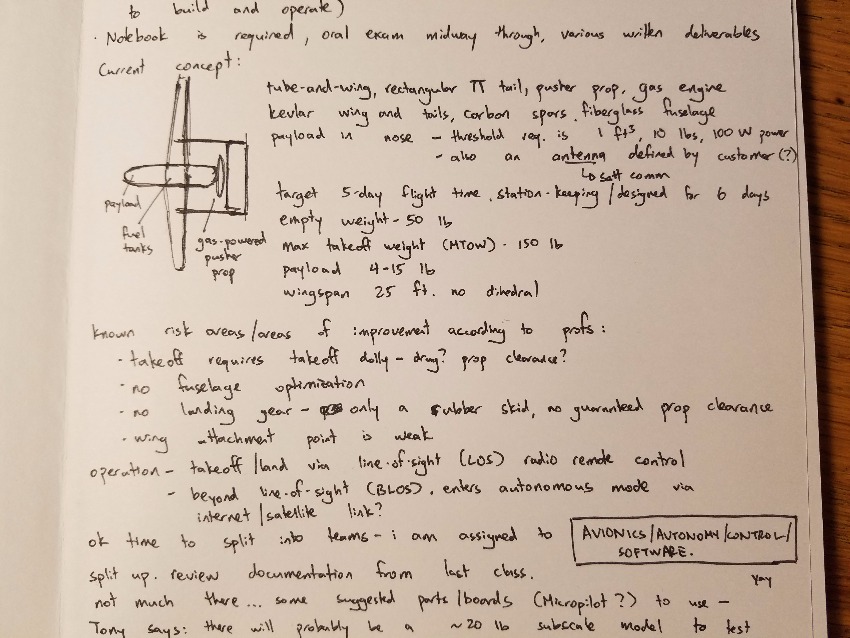 to build and operate)
· Notebook is required, oral exam midway through, various written deliverables
Current concept:
tube-and-wing, rectangular π tail, pusher prop, gas engine
kevlar wing and tails, carbon spars, fiberglass fuselage
payload in nose - threshold req. is 1 ft³, 10 lbs, 100 W power
- also an antenna defined by customer (?)
↳ satt comm
target 5-day flight time, station-keeping / designed for 6 days
empty weight - 50 lb
max takeoff weight (MTOW) - 150 lb
payload 4-15 lb
wingspan 25 ft. no dihedral
payload
fuel
tanks
gas-powered
pusher
prop
known risk areas/areas of improvement according to profs:
· takeoff requires takeoff dolly - drug? prop clearance?
· no fuselage optimization
· no landing gear - only a rubber skid, no guaranteed prop clearance
· wing attachment point is weak
operation - takeoff/land via line-of-sight (LOS) radio remote control
- beyond line-of-sight (BLOS), enters autonomous mode via
internet/satellite link?
ok time to split into teams - i am assigned to
AVIONICS/AUTONOMY/CONTROL/
SOFTWARE.
yay
split up. review documentation from last class.
not much there... some suggested parts/boards (Micropilot?) to use -
Tony says: there will probably be a ~20 lb subscale model to test